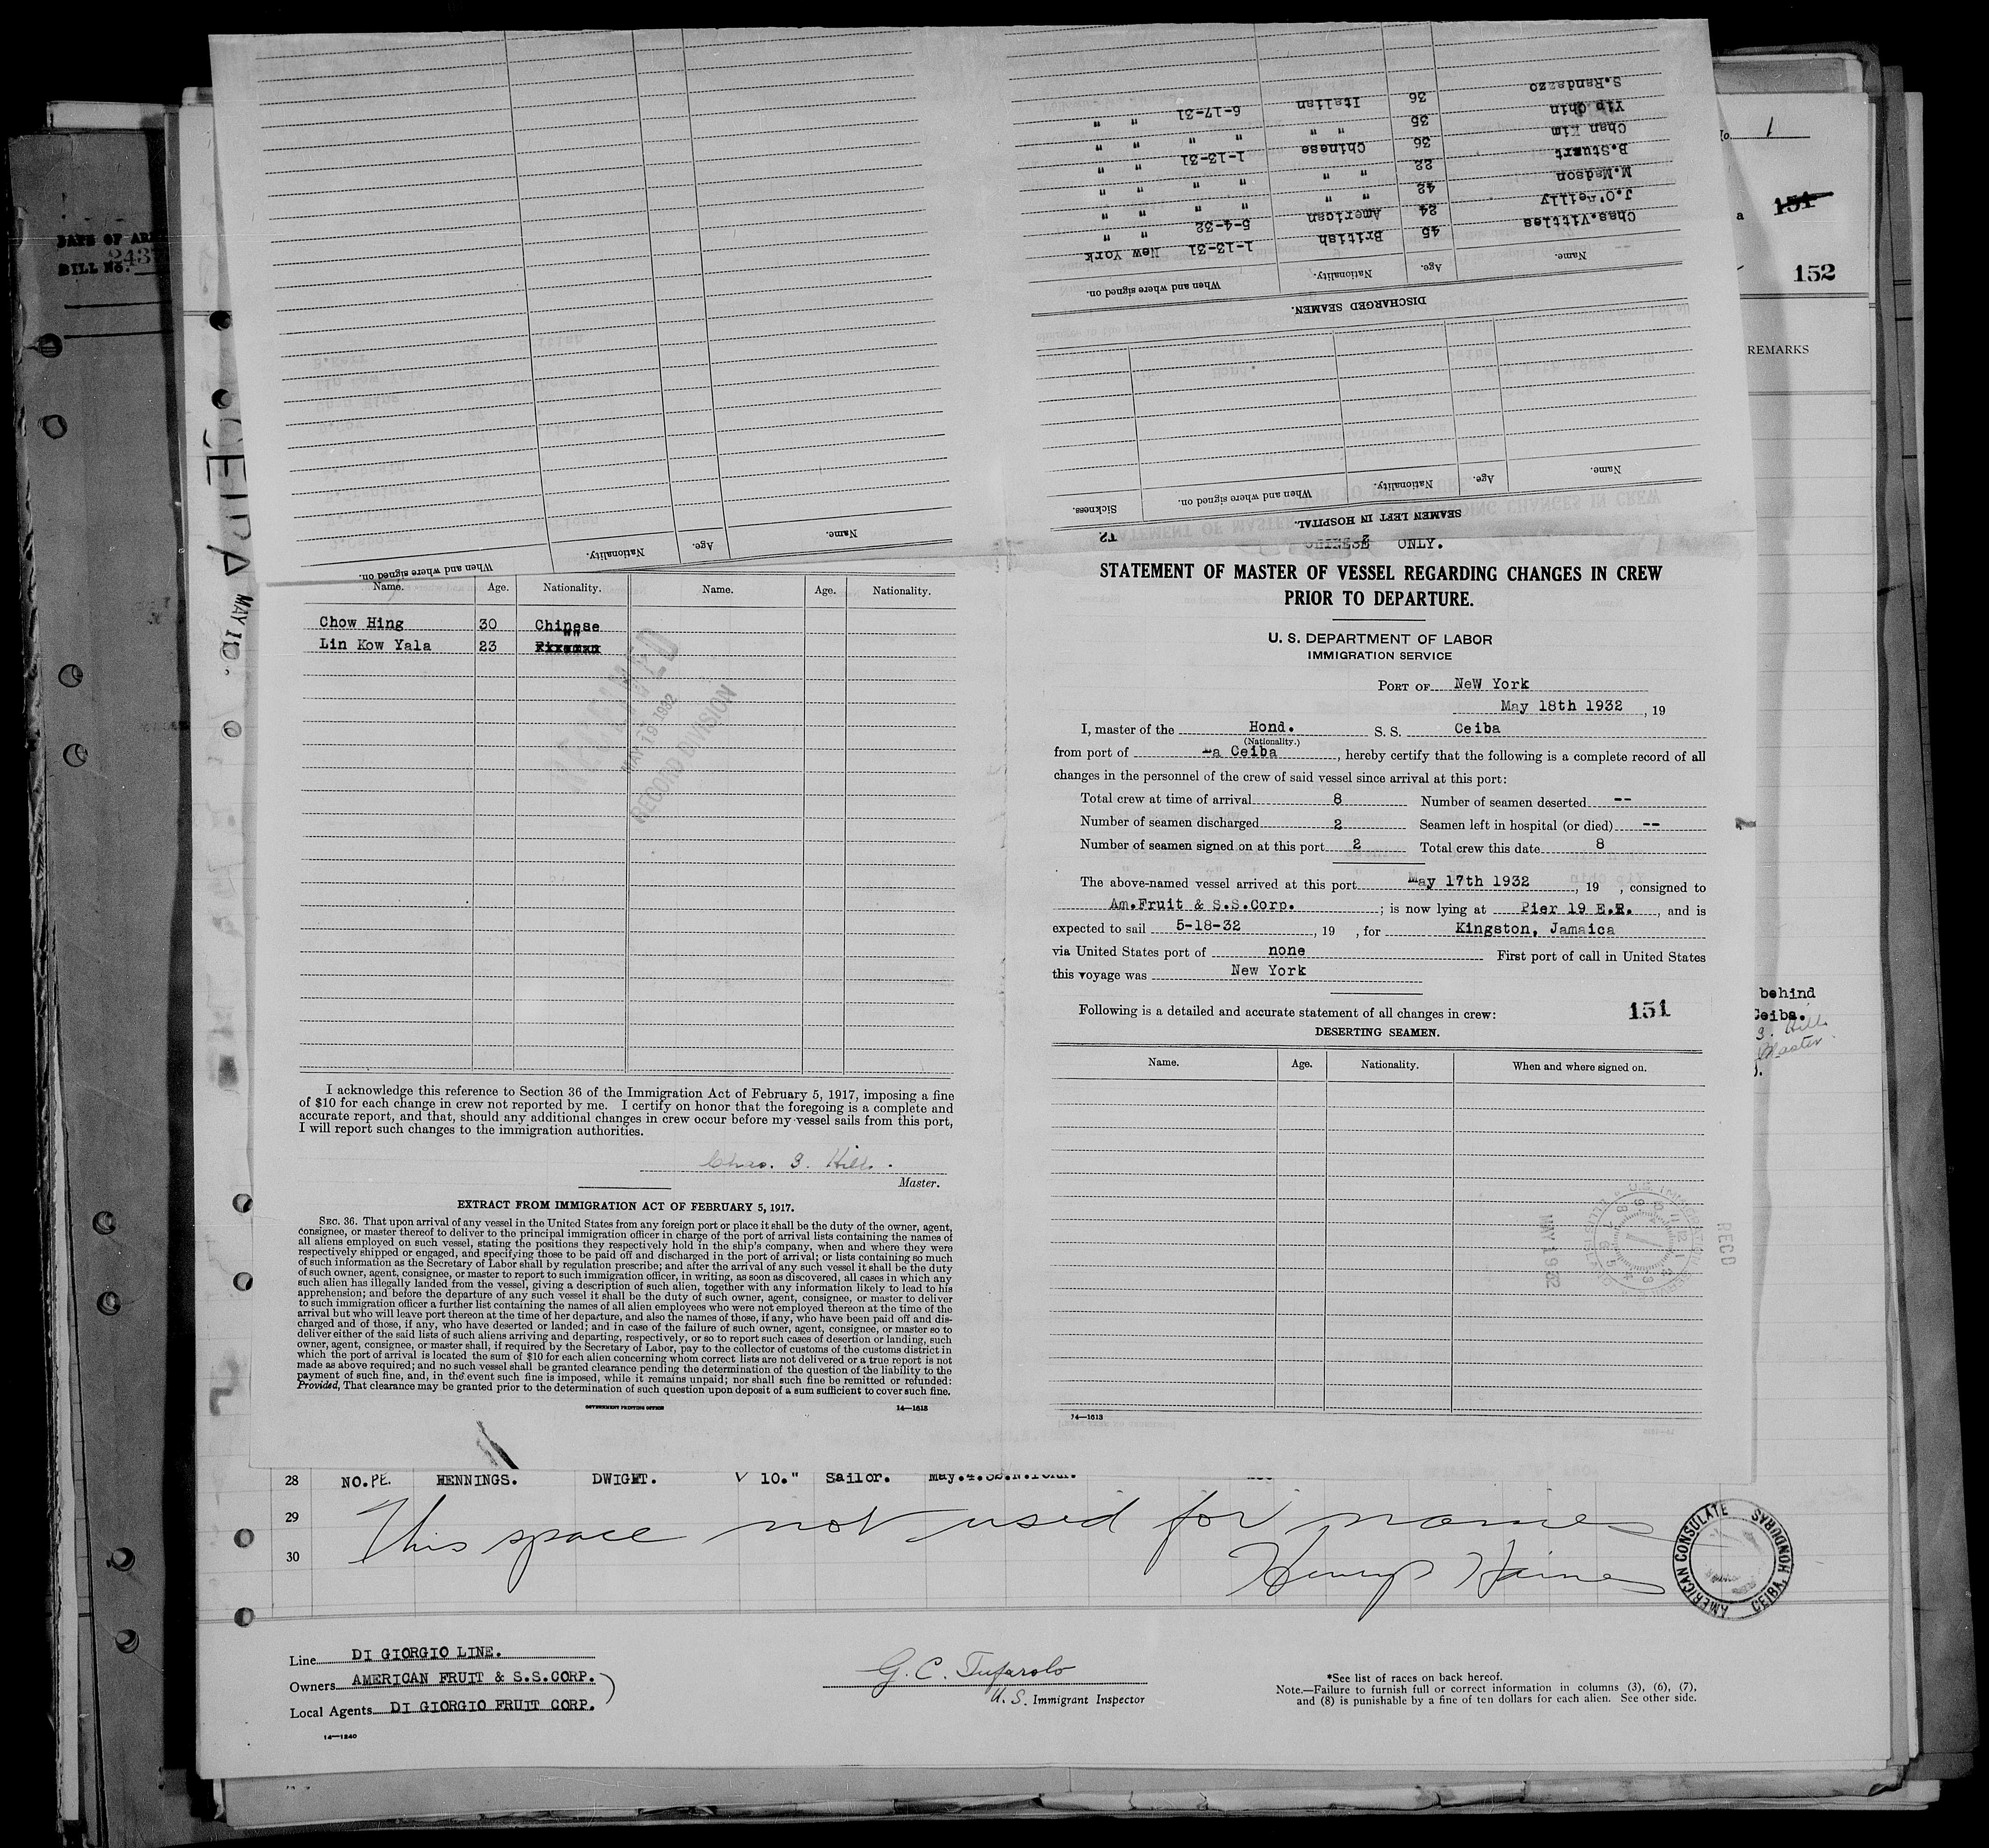 S.Randazzo 36 Italian 6-17-31 " "
Yip Chin 35 " " " " "
Chan Kim 36 Chinese 1-13-31 " "
B.Stuart 22 " " " " "
M.Madson 42 " " " " "
J.O'neilly 24 American 5-4-32 " "
Chas.Vittles 45 British 1-13-31 New York
Name. Age. Nationality. When and where signed on.
DISCHARGED SEAMEN.
Name. Age. Nationality. When and where signed on. Sickness.
SEAMEN LEFT IN HOSPITAL.
Name. Age. Nationality. When and where signed on.
No. 1
151
152
REMARKS
DATE OF
BILL No.
CEIBA
Name. Age. Nationality. Name. Age. Nationality.
Chow Hing 30 Chinese
Lin Kow Yala 23 "
MAY 19 1932
RECORD DIVISION
I acknowledge this reference to Section 36 of the Immigration Act of February 5, 1917, imposing a fine
of $10 for each change in crew not reported by me. I certify on honor that the foregoing is a complete and
accurate report, and that, should any additional changes in crew occur before my vessel sails from this port,
I will report such changes to the immigration authorities.
Chas. G. Hill.
Master.
EXTRACT FROM IMMIGRATION ACT OF FEBRUARY 5, 1917.
SEC. 36. That upon arrival of any vessel in the United States from any foreign port or place it shall be the duty of the owner, agent,
consignee, or master thereof to deliver to the principal immigration officer in charge of the port of arrival lists containing the names of
all aliens employed on such vessel, stating the positions they respectively hold in the ship's company, when and where they were
respectively shipped or engaged, and specifying those to be paid off and discharged in the port of arrival; or lists containing so much
of such information as the Secretary of Labor shall by regulation prescribe; and after the arrival of any such vessel it shall be the duty
of such owner, agent, consignee, or master to report to such immigration officer, in writing, as soon as discovered, all cases in which any
such alien has illegally landed from the vessel, giving a description of such alien, together with any information likely to lead to his
apprehension; and before the departure of any such vessel it shall be the duty of such owner, agent, consignee, or master to deliver
to such immigration officer a further list containing the names of all alien employees who were not employed thereon at the time of the
arrival but who will leave port thereon at the time of her departure, and also the names of those, if any, who have been paid off and dis-
charged and of those, if any, who have deserted or landed; and in case of the failure of such owner, agent, consignee, or master so to
deliver either of the said lists of such aliens arriving and departing, respectively, or so to report such cases of desertion or landing, such
owner, agent, consignee, or master shall, if required by the Secretary of Labor, pay to the collector of customs of the customs district in
which the port of arrival is located the sum of $10 for each alien concerning whom correct lists are not delivered or a true report is not
made as above required; and no such vessel shall be granted clearance pending the determination of the question of the liability to the
payment of such fine, and, in the event such fine is imposed, while it remains unpaid; nor shall such fine be remitted or refunded:
Provided, That clearance may be granted prior to the determination of such question upon deposit of a sum sufficient to cover such fine.
GOVERNMENT PRINTING OFFICE 14—1613
CHINESE ONLY.
STATEMENT OF MASTER OF VESSEL REGARDING CHANGES IN CREW
PRIOR TO DEPARTURE.
U. S. DEPARTMENT OF LABOR
IMMIGRATION SERVICE
PORT OF NeW York
May 18th 1932, 19
I, master of the Hond. S. S. Ceiba
(Nationality.)
from port of La Ceiba, hereby certify that the following is a complete record of all
changes in the personnel of the crew of said vessel since arrival at this port:
Total crew at time of arrival 8 Number of seamen deserted --
Number of seamen discharged 2 Seamen left in hospital (or died) --
Number of seamen signed on at this port 2 Total crew this date 8
The above-named vessel arrived at this port May 17th 1932, 19 , consigned to
Am.Fruit & S.S.Corp. ; is now lying at Pier 19 E.R. , and is
expected to sail 5-18-32, 19 , for Kingston, Jamaica
via United States port of none First port of call in United States
this voyage was New York
Following is a detailed and accurate statement of all changes in crew: 151
DESERTING SEAMEN.
Name. Age. Nationality. When and where signed on.
RECD
14—1613
behind
Ceiba.
Hill
Master
28 NO.PE. HENNINGS. DWIGHT. √ 10." Sailor. May.4.32.N.York.
29 This space not used for names
30 Henry Haines
AMERICAN CONSULATE CEIBA, HONDURAS
Line DI GIORGIO LINE.
Owners AMERICAN FRUIT & S.S.CORP.
Local Agents DI GIORGIO FRUIT CORP.
14—1240
G. C. Tufarolo
U. S. Immigrant Inspector
*See list of races on back hereof.
Note.—Failure to furnish full or correct information in columns (3), (6), (7),
and (8) is punishable by a fine of ten dollars for each alien. See other side.